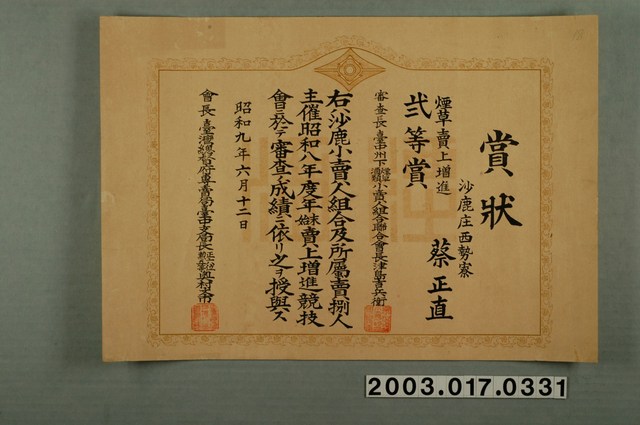 賞狀
沙鹿庄西勢寮
蔡正直
煙草賣上增進
弍等賞
審查長臺中州下煙草酒類小賣人組合聯合會長津島吉兵衛
右ハ沙鹿小賣人組合及所屬賣捌人
主催昭和八年度年末年始賣上增進競技
會ニ於テ審查ノ成績ニ依リ之ヲ授與ス
昭和九年六月十二日
會長臺灣總督府專賣局臺中支局長
2003.017.0331